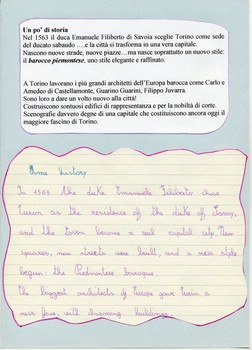 Un po' di storia
Nel 1563 il duca Emanuele Filiberto di Savoia sceglie Torino come sede
del ducato sabaudo ….e la città si trasforma in una vera capitale.
Nascono nuove strade, nuove piazze…ma nasce soprattutto un nuovo stile:
il barocco piemontese, uno stile elegante e raffinato.
A Torino lavorano i più grandi architetti dell'Europa barocca come Carlo e
Amedeo di Castellamonte, Guarino Guarini, Filippo Juvarra.
Sono loro a dare un volto nuovo alla città!
Costruiscono sontuosi edifici di rappresentanza e per la nobiltà di corte.
Scenografie davvero degne di una capitale che costituiscono ancora oggi il
maggiore fascino di Torino.
history
In 1563 the duke Emanuele Filiberto chose
Turin as the residence of the duke of Savoy,
and the town became a real capital city. New
squares, new streets were built, and a new style
begun: the Piedmontese baroque.
The biggest architects of Europe gave Turin a
new face, with charming buildings.